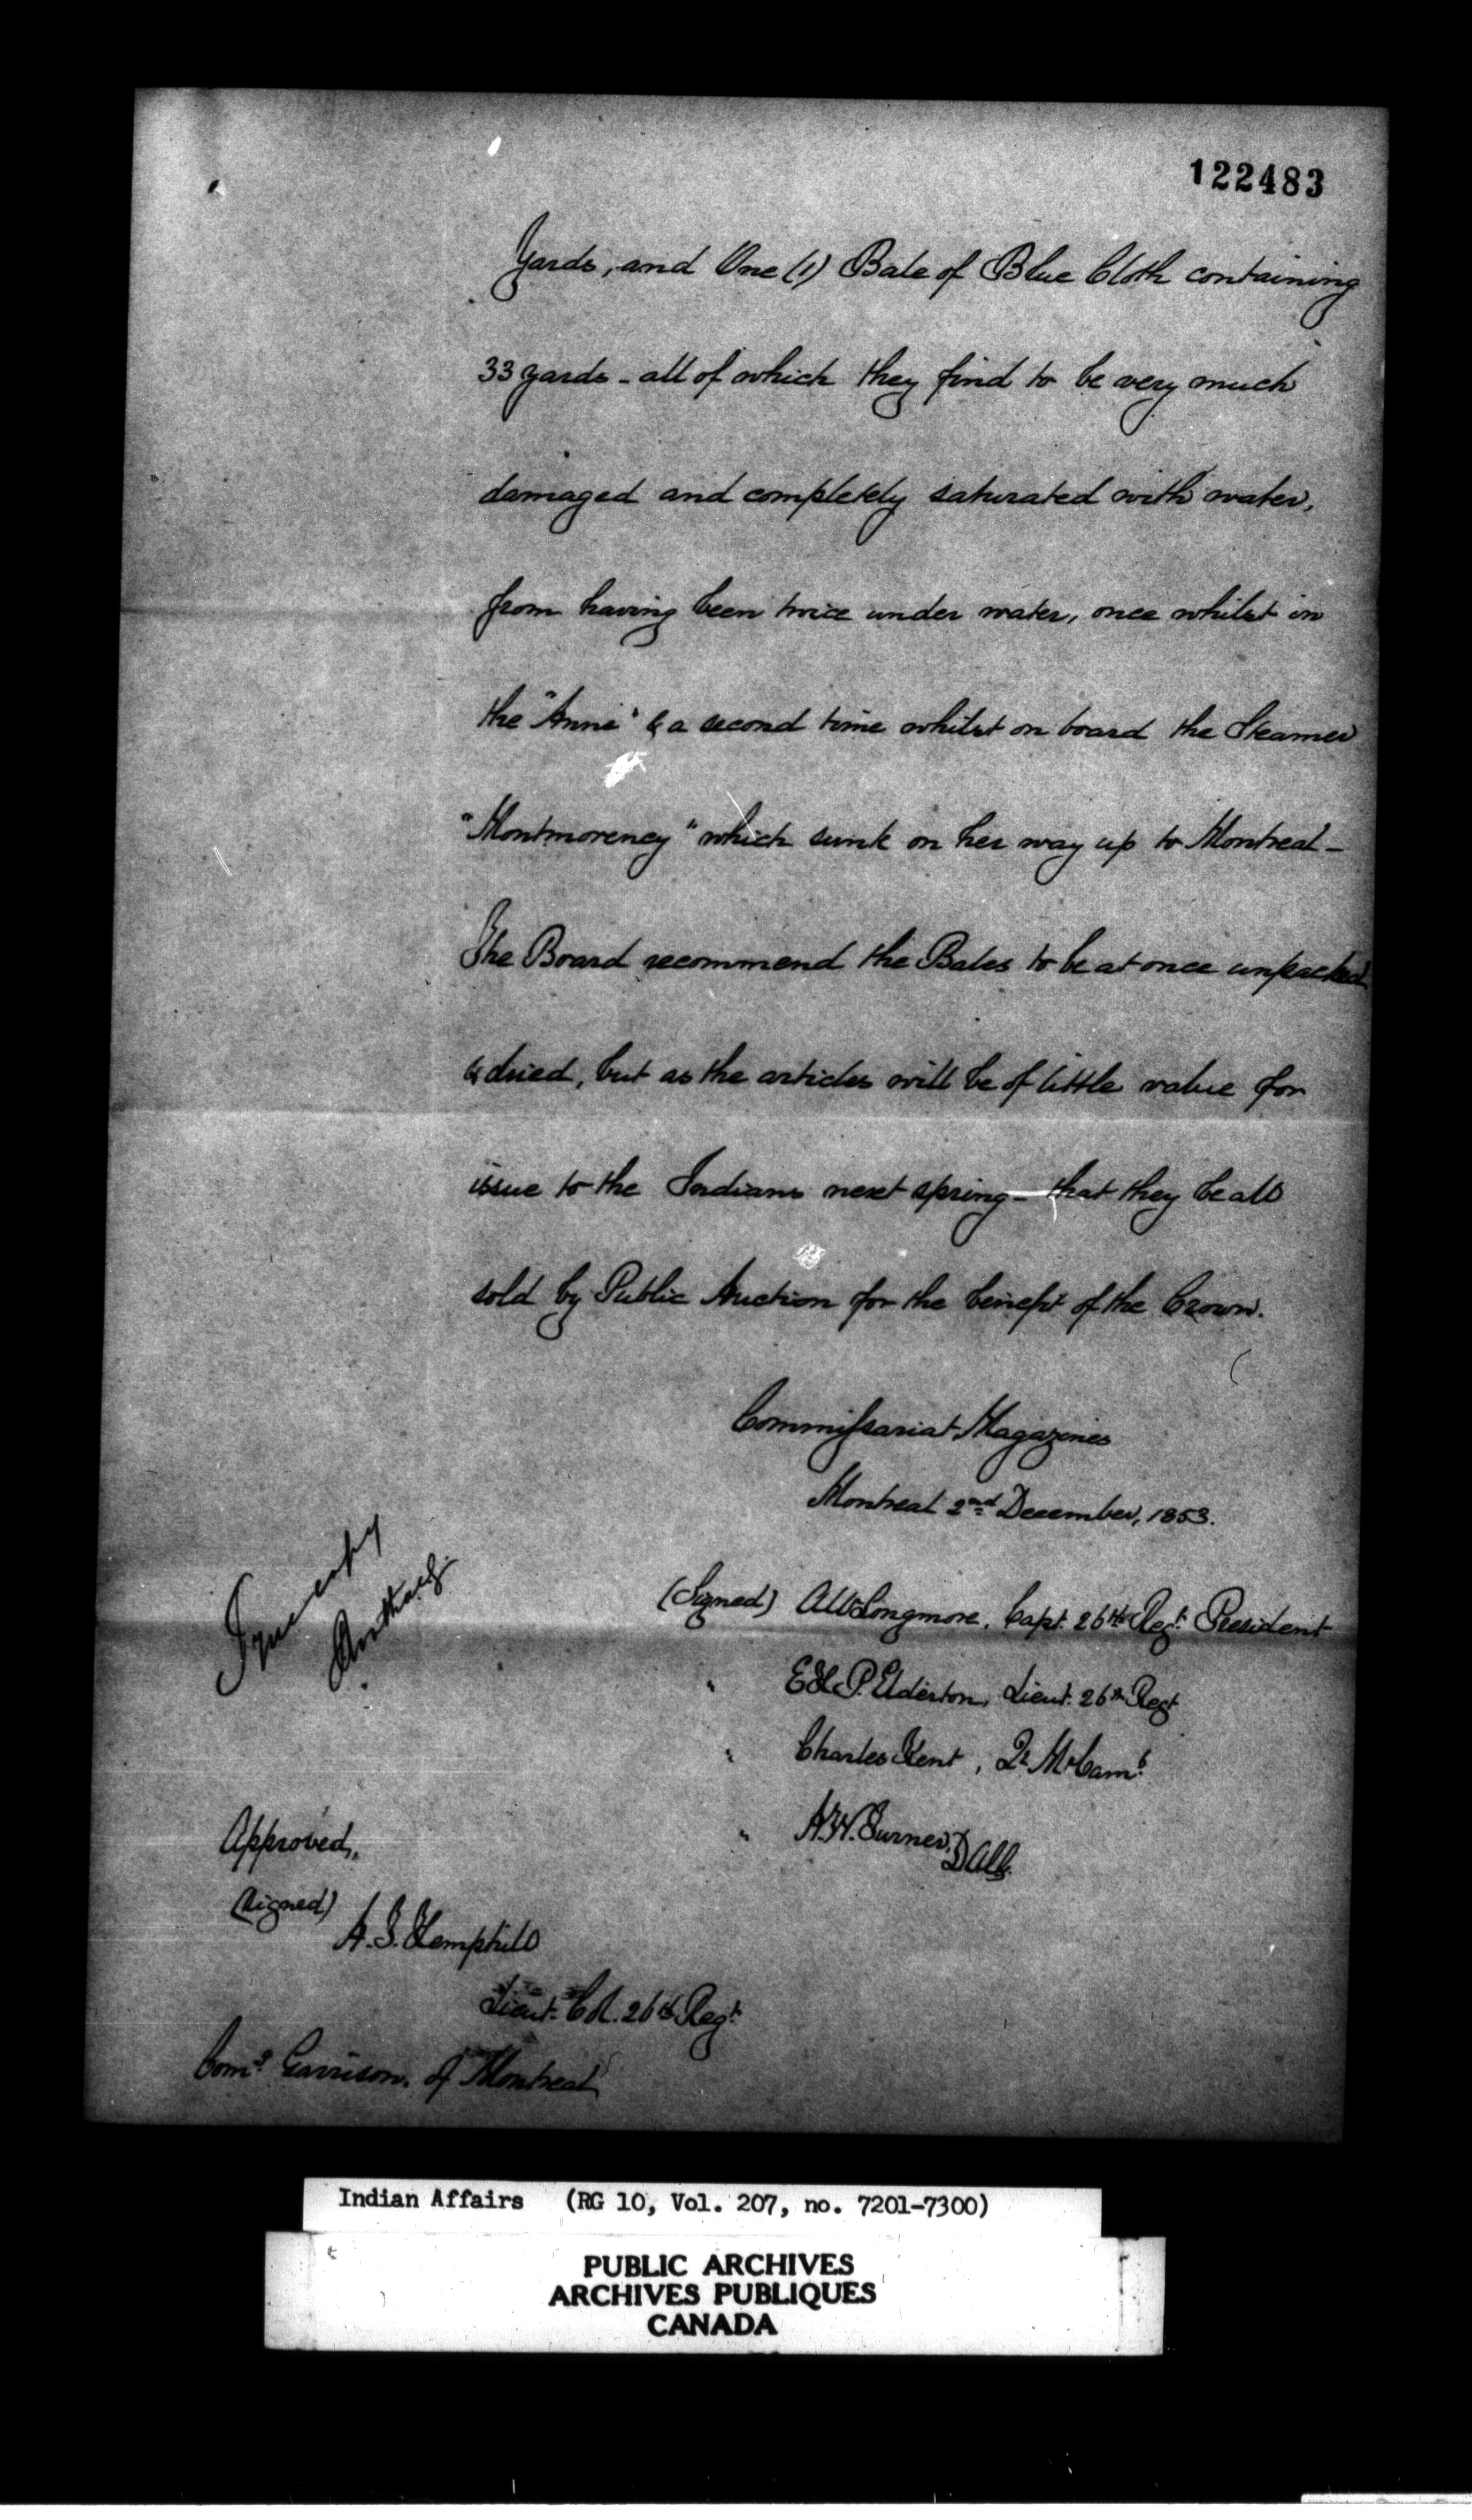 122483
Yards, and One (1) Bale of Blue Cloth containing
33 yards - all of which they find to be very much
damaged and completely saturated with water,
from having been twice under water, once whilst in
the "Anne" & a second time whilst on board the Steamer
"Montmorency" which sunk on her way up to Montreal -
The Board recommend the Bales to be at once unpacked
& dried, but as the articles will be of little value for
issue to the Indians next spring - that they be all
sold by Public Auction for the benefit of the Crown.
Commissariat Magazines
Montreal 2nd December, 1853.
True copy
(Signed) Longmore, Capt. 26th Regt. President
" E H P. Elderton, Lieut. 26th Regt
" Charles Kent,
" Turner,
Approved,
(Signed)
A. T. Hemphill
Lieut. Col. 26th Regt.
Comg. Garrison of Montreal
Indian Affairs (RG 10, Vol. 207, no. 7201-7300)
PUBLIC ARCHIVES
ARCHIVES PUBLIQUES
CANADA